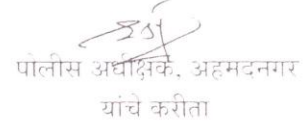 पोलीस अधीक्षक, अहमदनगर
यांचे करीता